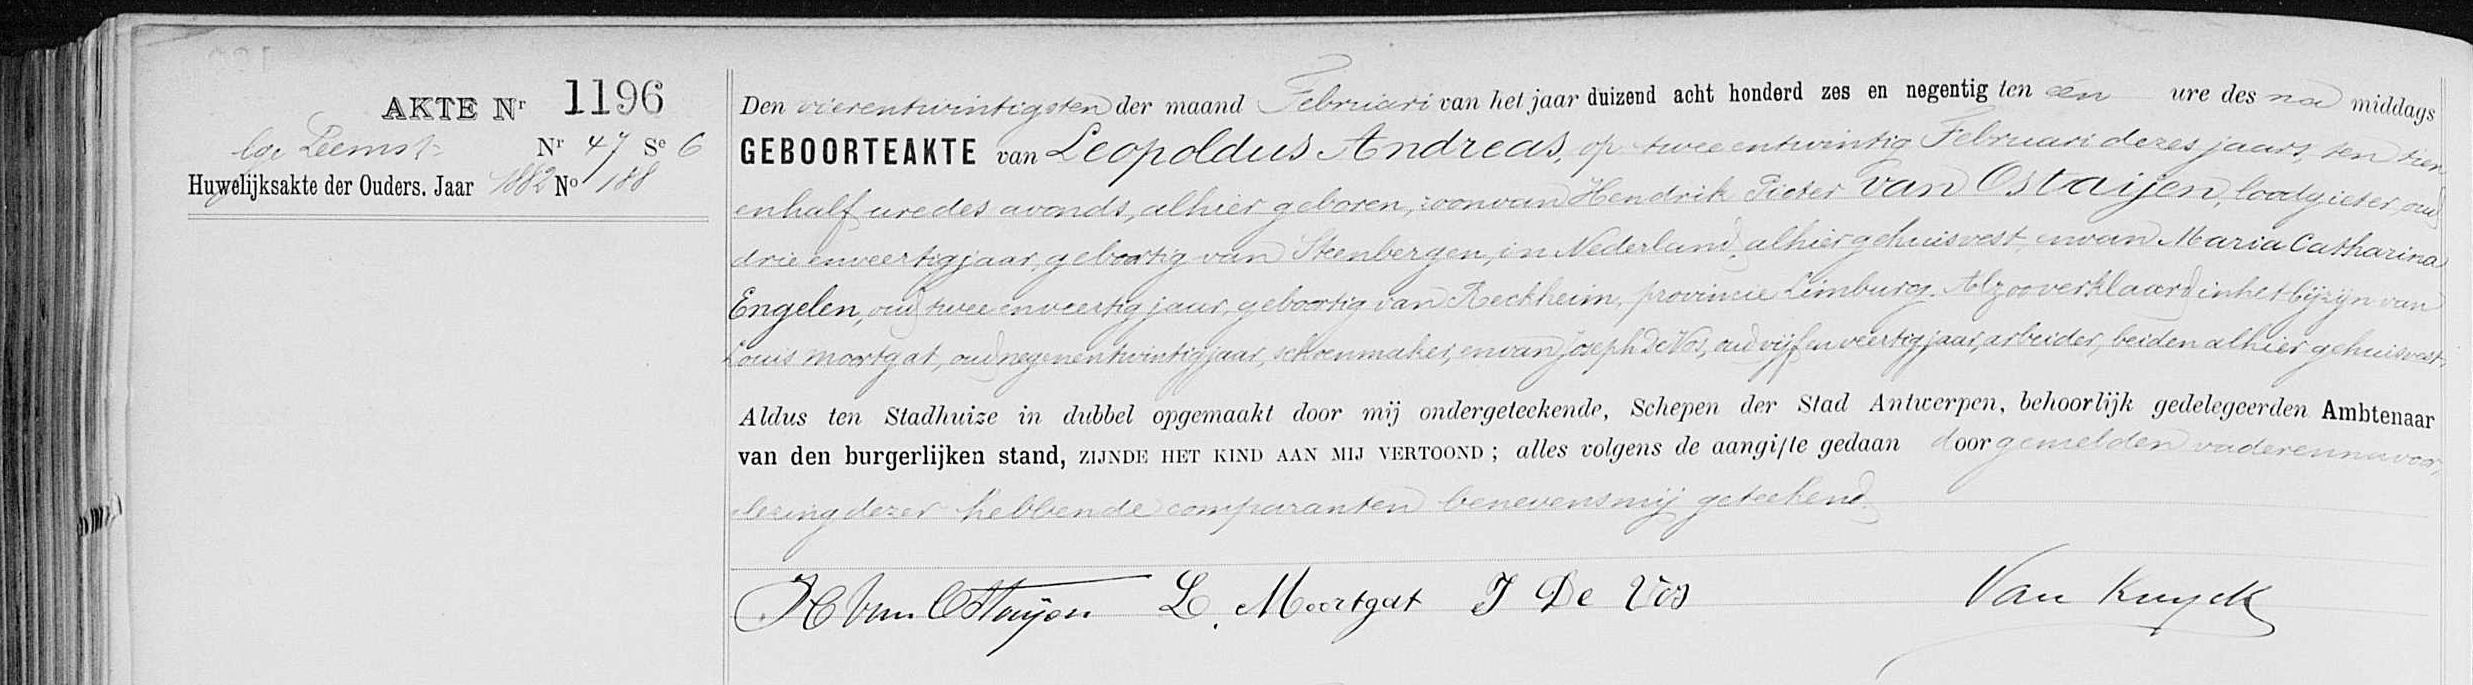 AKTE Nr 1196
Lge Leemst. Nr 47 Se 6
Huwelijksakte der Ouders. Jaar 1882 No 188
Den vierentwintigsten der maand Februari van het jaar duizend acht honderd zes en negentig ten één ure des na middags
GEBOORTEAKTE van Leopoldus Andreas, op tweeentwintig Februari dezes jaars, ten tien
enhalf ure des avonds, alhier geboren, zoon van Hendrik Pieter Van Ostaijen, loodgieter, oud
drieenveertig jaar, geboortig van Steenbergen, in Nederland, alhier gehuisvest en van Maria Catharina
Engelen, oud tweeenveertig jaar, geboortig van Reckheim, provincie Limburg. Alzoo verklaard in het bijzijn van
Louis Moortgat, oud negenentwintig jaar, schoenmaker, en van Joseph De Vos, oud vijfenveertig jaar, arbeider, beiden alhier gehuisvest.
Aldus ten Stadhuize in dubbel opgemaakt door mij ondergeteekende, Schepen der Stad Antwerpen, behoorlijk gedelegeerden Ambtenaar
van den burgerlijken stand, ZIJNDE HET KIND AAN MIJ VERTOOND ; alles volgens de aangifte gedaan door gemelden vader en na voor,
lezing dezer hebbende comparanten benevens mij geteekend.
H Van Ostaijen L. Moortgat J De Vos Van Kuyck